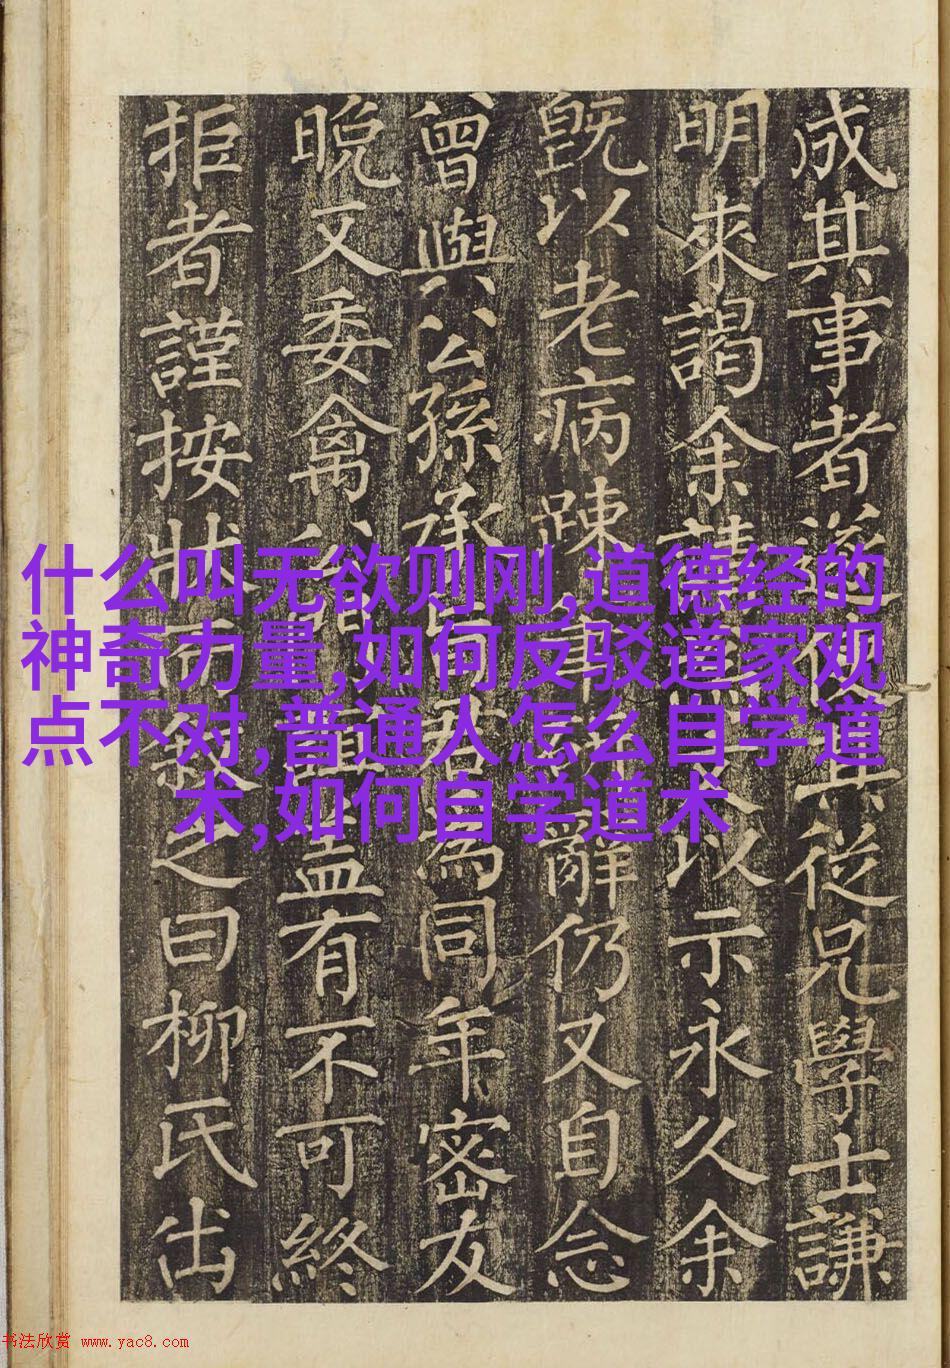 成其事者其從兄學士謙
明來謁余請以示永久余
既以老病踈辭仍又自念
曾與公孫承君為同年密友
晩又委禽誼盖有不可終
拒者謹按狀叙之曰柳氏出
什么叫无欲则刚,道德经的
神奇力量,如何反驳道家观
点不对,普通人怎么自学道
术,如何自学道术
书法欣赏 www.yac8.com